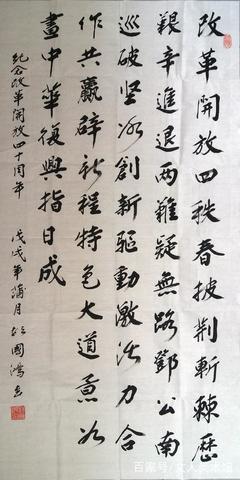 改革開放四秩春披荆斬棘歷
艱辛進退兩難疑無路鄧公南
巡破坚冰創新驅動激活力合
作共贏辟新程特色大道景如
畫中華復興指日成
纪念改革開放四十周年 戊戌年蒲月 國鴻
百家号/文人美术馆